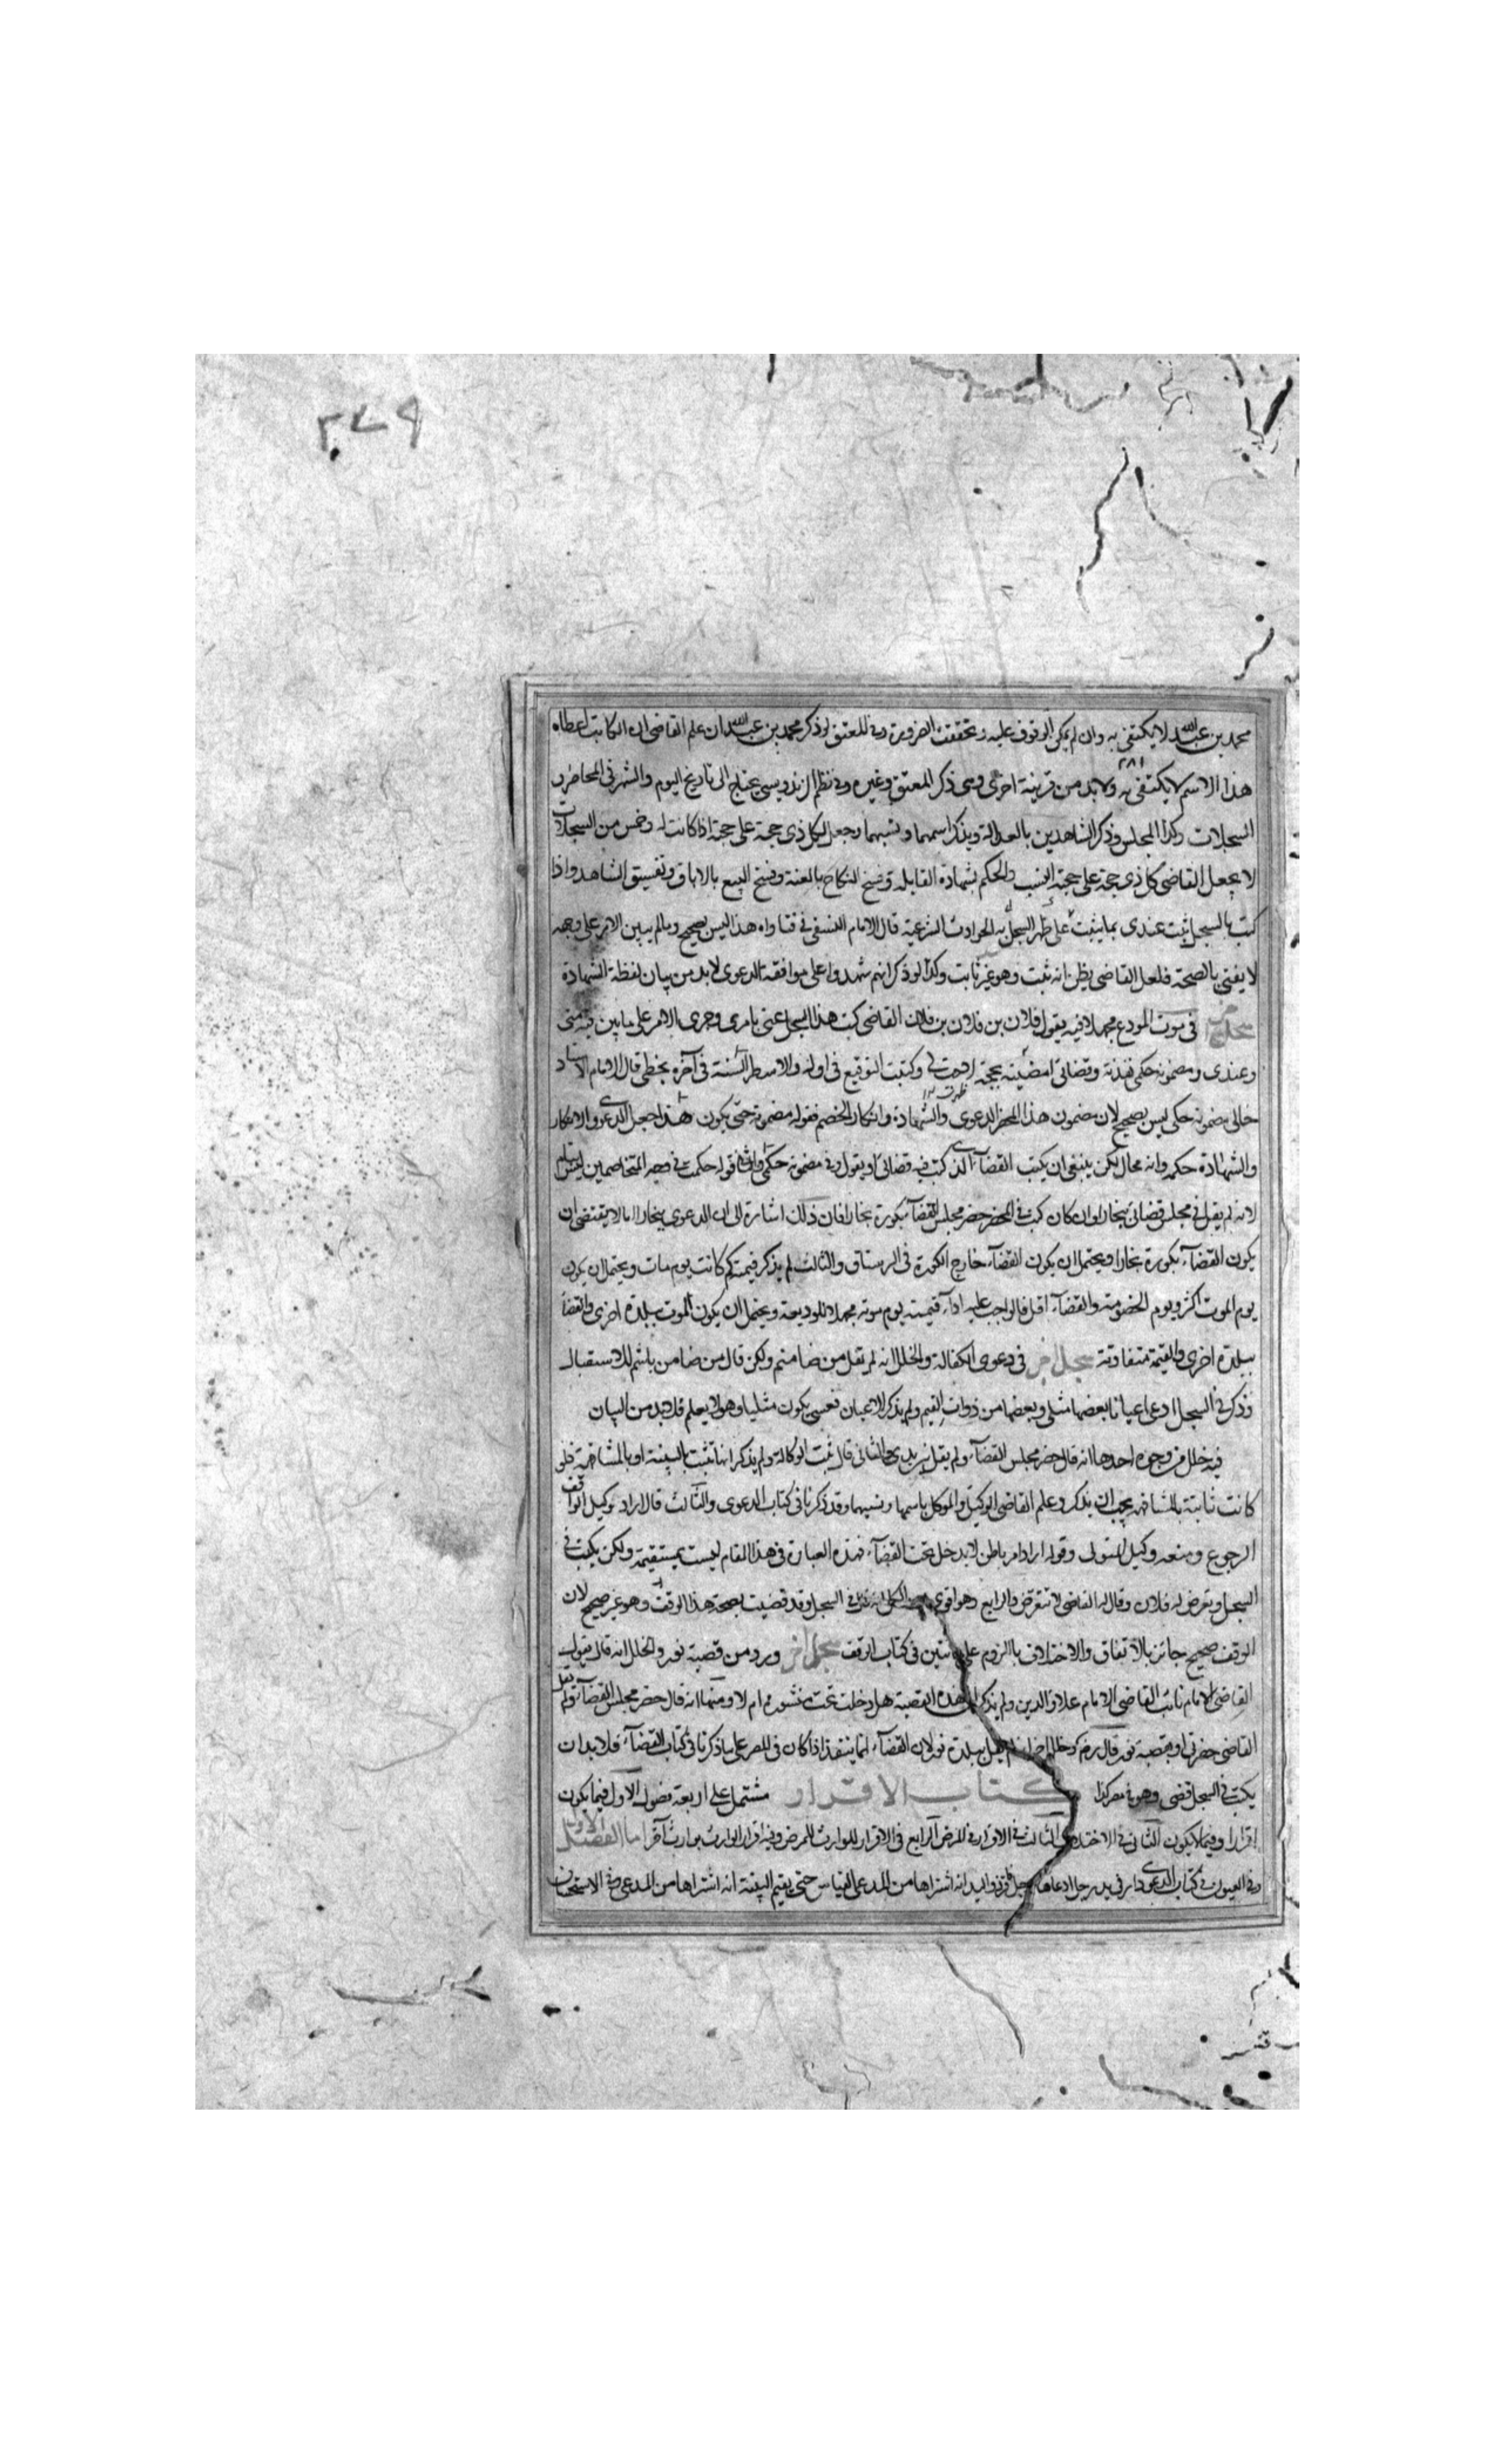 ٢٧٩
محمد بن عبد الله لا يكتفى به وان لم يمكن الوقوف عليه وتحققت الضرورة وفي للمعتق لو ذكر محمد بن عبد الله ان علم القاضى ان الكاتب اعطاه
هذا الاسم لا يكتفى به ولا بد من قرينة اخرى وهى ذكر المعتق وغيره وفي نظم الزندويسى يحتاج الى تاريخ اليوم والشهر فى المحاضر و
السجلات وكذا المجلس وذكر الشاهدين بالعدالة ويذكر اسمهما ونسبهما وجعل لكل ذى حجة على حجة اذا كانت له وخمس من السجلات
لا يجعل القاضى كل ذى حجة على حجة النسب والحكم بشهادة القابلة وفسخ النكاح بالعنة وفسخ البيع بالاباق وتفسيق الشاهد واذا
كتب بالسجل ثبت عندى بما يثبت على ظهر السجل به الحوادث الشرعية قال الامام النسفى فى فتاواه هذا ليس بصحيح وما لم يبين الامر على وجهه
لا يفتى بالصحة فلعل القاضى يظن انه ثبت وهو غير ثابت وكذا لو ذكر انهم شهدوا على موافقة الدعوى لا بد من بيان لفظة الشهادة
فى موت المودع مجهلا فيه يقول فلان بن فلان بن فلان القاضى كتب هذا السجل عنى بامرى وجرى الامر على ما بين فيه منى
وعندى ومضمونه حكمى نفذته وقضائى امضيته بحجة وكتبت التوقيع فى اوله والاسطر الستة فى آخره بخطى قال الامام الاستاد
خالى مضمونه حكمى ليس بصحيح لان مضمون هذا المحضر الدعوى والشهادة وانكار الخصم فقوله مضمونه حتى يكون هذا جعل الدعوى والانكار
والشهادة حكمه وانه محال لكن ينبغى ان يكتب القضاء الذى كتب فيه قضائى او يقول وفى مضمونه حكمى قوله حكمت فى وجه المتخاصمين ليس
لانه لم يقل فى مجلس قضائى ببخارا وان كان كتب فى المحضر حضر مجلس القضاء بكورة بخارا فان ذلك اشارة الى ان الدعوى ببخارا اما لا يقتضى ان
يكون القضاء بكورة بخارا ويحتمل ان يكون القضاء خارج الكورة فى الرستاق والثالث لم يذكر قيمته كم كانت يوم مات ويحتمل ان يكون
يوم الموت اكثر ويوم الخصومة والقضاء اقل فالواجب عليه اداء قيمته يوم موته مجهلا للوديعة ويحتمل ان يكون الموت ببلدة اخرى والقضا
ببلدة اخرى والقيمة متفاوتة سجل آخر فى دعوى الكفالة والخلل انه لم يقل من ضامنم ولكن قال من ضامن باشم للاستقبال
وذكر فى السجل ادعا اعيانا بعضها مثلى وبعضها من ذوات القيم ولم يذكر الاعيان فعسى يكون مثليا وهو لا يعلم فلا بد من البيان
فيه خلل من وجوه احدها انه قال حضر مجلس القضاء ولم يقل والثانى قال ثبت الوكالة ولم يذكر انها تثبت بالبينة او بالمشافهة فلو
كانت ثابتة بالمشافهة يجب ان يذكر وعلم القاضى الوكيل والموكل باسمها ونسبهما وقد ذكرنا فى كتاب الدعوى والثالث قال اراد توكيل الواقف
الرجوع ومنعه وكيل المتولى وقوله اراد امر باطن لا يدخل تحت القضاء فهذه العبارة فى هذا المقام ليست بمستقيمة ولكن يكتب فى
السجل وتعرض له فلان وقال له القاضى لا تتعرض والرابع وهو اقوى السجل وقد قضيت بصحة هذا الوقف وهو غير صحيح لان
الوقف صحيح جائز بالاتفاق والاختلاف بالزوم على ما تبين فى كتاب الوقف سجل آخر ورد من قصبة نور والخلل انه قال يقول
القاضى الامام نائب القاضى الامام علاء الدين ولم يذكر ان هذه القصبة هل دخلت تحت منشوره ام لا ومنها انه قال حضر مجلس القضاء ولم يقل
القاضى حضرنى او بقصبة نور قال ببلدة نور لان القضاء انما ينفذ اذا كان فى المصر على ما ذكرنا فى كتاب القضاء فلا بد ان
يكتب فى السجل قضى وهو فى مصر كذا كتاب الاقرار مشتمل على اربعة فصول الاول فيما يكون
اقرارا وفيما لا يكون الثانى فى الاختلاف الثالث فى الاقرار فى المرض الرابع فى الاقرار للوارث للمرض وفيه اقرار الوارث بوارث آخر اما الفصل الاول
وفى العيون فى كتاب الدعوى دار فى يد رجل ادعاها رجل انه اشتراها من المدعى القياس حتى يقيم البينة انه اشتراها من المدعى وفى الاستحسان